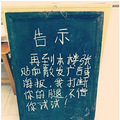 告示
再到本楼张
贴和散发广告
海报,我打断
你的腿,不信
你试试!